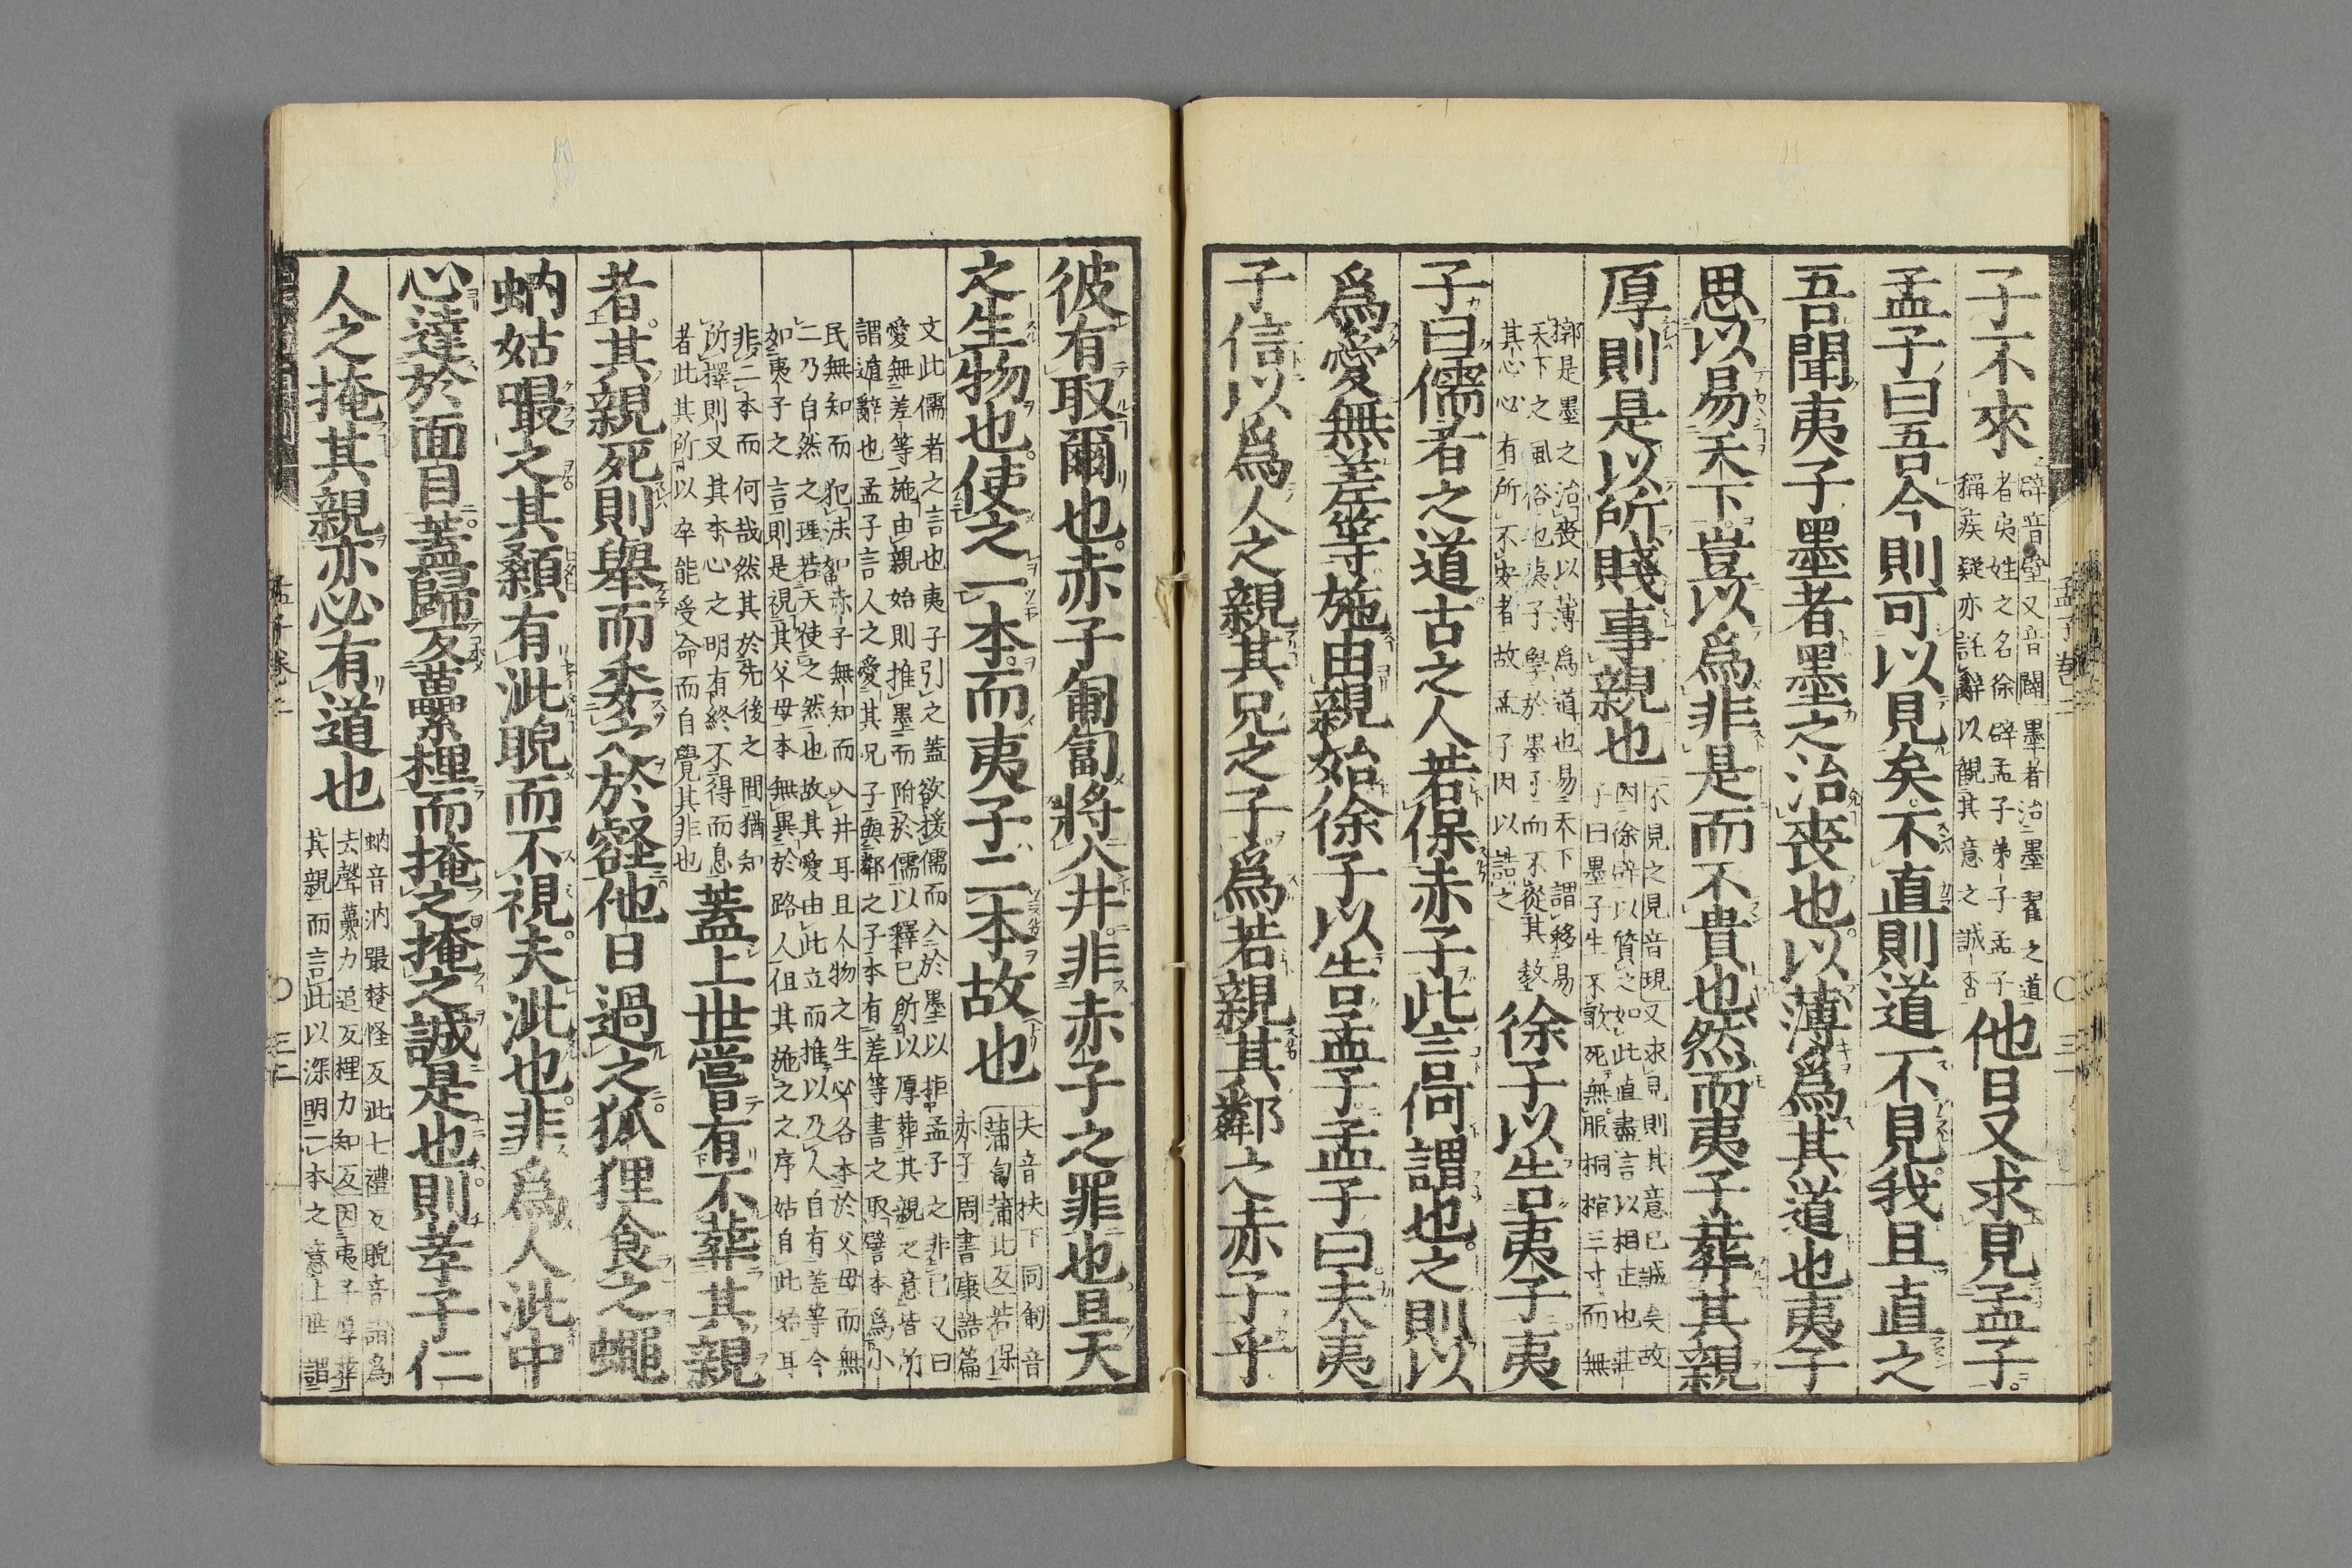 子不來
辟音壁又音闢墨者治墨翟之道
者夷姓之名徐辟孟子弟子孟子
稱疾疑亦託辭以觀其意之誠否
他日又求見孟子。
孟子曰吾今則可以見矣。不直則道不見。我且直之
吾聞夷子墨者墨之治喪也。以薄爲其道也夷子
思以易天下豈以爲非是而不貴也。然而夷子葬其親
厚則是以所賤事親也
不見之見音現又求見則其意已誠矣故
因徐辟以質之如此直盡言以相正也莊
子曰墨子生不歌死無服桐棺三寸而無
槨是墨之治喪以薄爲道也易天下謂移易
天下之風俗也夷子學於墨子而不從其敎
其心必有所不安者故孟子因以詰之
徐子以告夷子夷
子曰儒者之道古之人若保赤子此言何謂也。之則以
爲愛無差等施由親始徐子以告孟子孟子曰夫夷
子信以爲人之親其兄之子。爲若親其鄰之赤子乎
彼有取爾也。赤子匍匐將入井。非赤子之罪也且天
之生物也。使之一本。而夷子二本故也
夫音扶下同匍音
蒲匐蒲北反若保
赤子周書康誥篇
文此儒者之言也夷子引之蓋欲援儒而入於墨以拒孟子之非己又曰
愛無差等施由親始則推墨而附於儒以釋己所以厚葬其親之意皆所
謂遁辭也孟子言人之愛其兄子與鄰之子本有差等書之取譬本爲小
民無知而犯法如赤子無知而入井耳且人物之生必各本於父母而無
二乃自然之理若天使之然也故其愛由此立而推以及人自有差等今
如夷子之言則是視其父母本無異於路人但其施之之序姑自此始耳
非二本而何哉然其於先後之間猶知
所擇則又其本心之明有終不得而息
者此其所以卒能受命而自覺其非也
蓋上世嘗有不葬其親
者。其親死則舉而委之於壑他日過之。狐狸食之蠅
蚋姑嘬之其顙有泚睨而不視。夫泚也。非爲人泚中
心達於面目。蓋歸反虆梩而掩之掩之誠是也。則孝子仁
人之掩其親亦必有道也
蚋音汭嘬楚怪反泚七禮反睨音詣爲
去聲虆力追反梩力知反因夷子厚葬
其親而言此以深明一本之意上世謂
孟子卷三